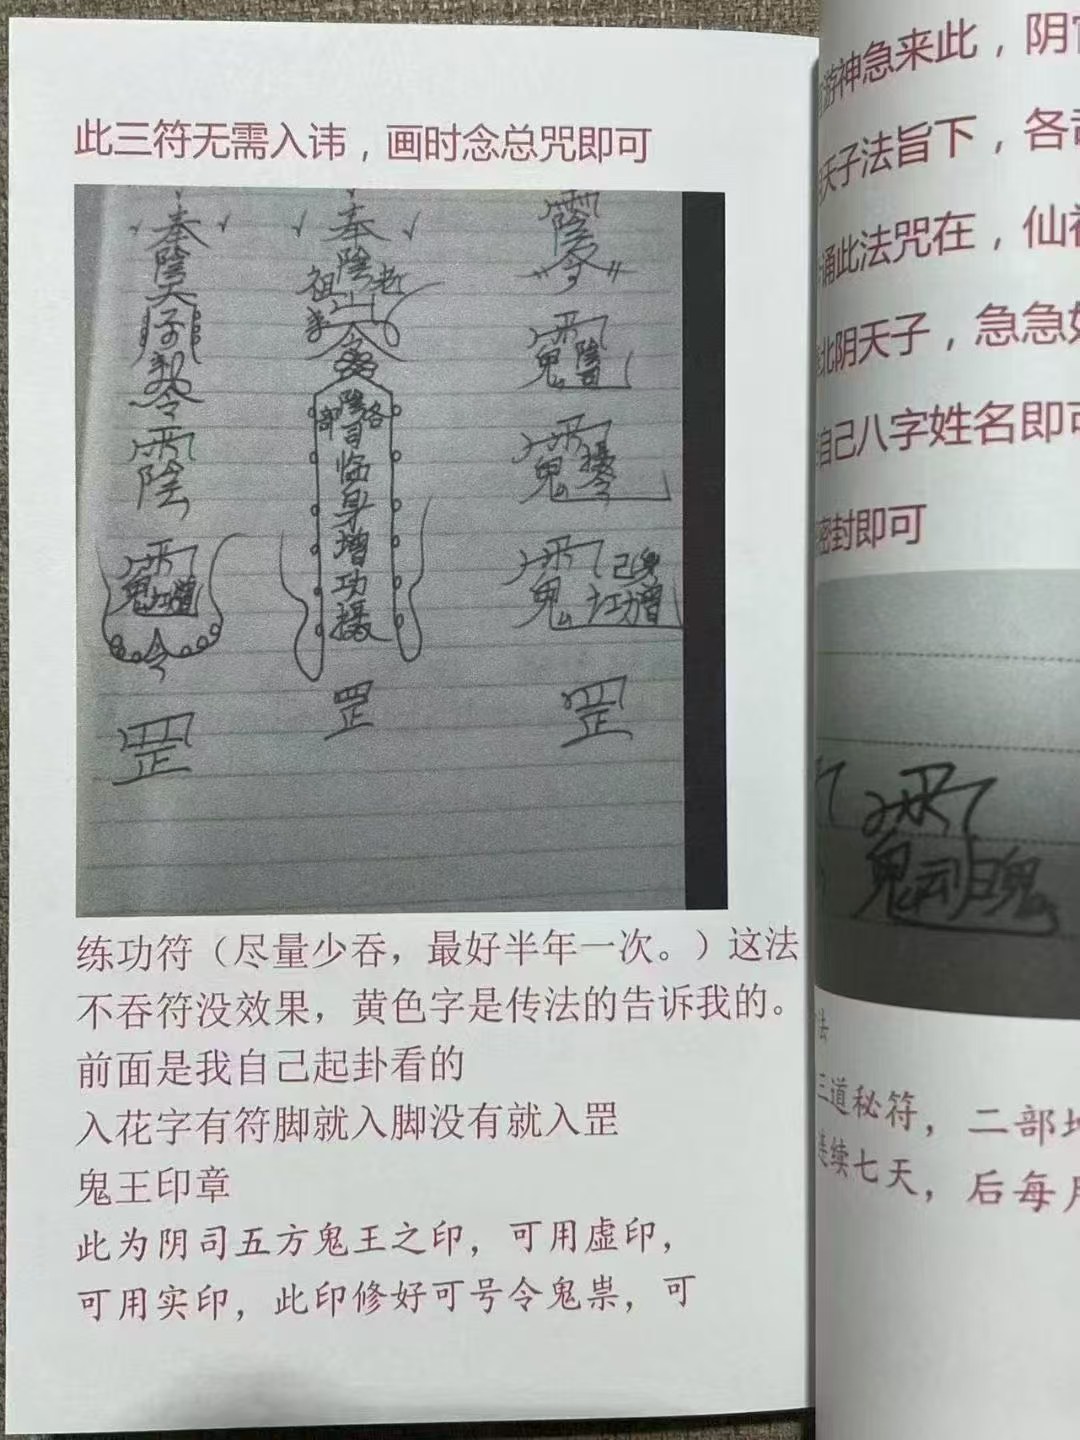 此三符无需入讳，画时念总咒即可
奉
陰
天
子
令
陰
鬼
令
罡
奉
陰
祖 山 老
令
部 陰 咨
司
临
身
增
功
攝
罡
陰
令
鬼 陰司
鬼 攝令
鬼 己身
功增
罡
练功符（尽量少吞，最好半年一次。）这法
不吞符没效果，黄色字是传法的告诉我的。
前面是我自己起卦看的
入花字有符脚就入脚没有就入罡
鬼王印章
此为阴司五方鬼王之印，可用虚印，
可用实印，此印修好可号令鬼祟，可
游神急来此，阴官
天子法旨下，各
诵此法咒在，仙神
北阴天子，急急如
自己八字姓名即可
密封即可
鬼
法
三道秘符，二部地
连续七天，后每月